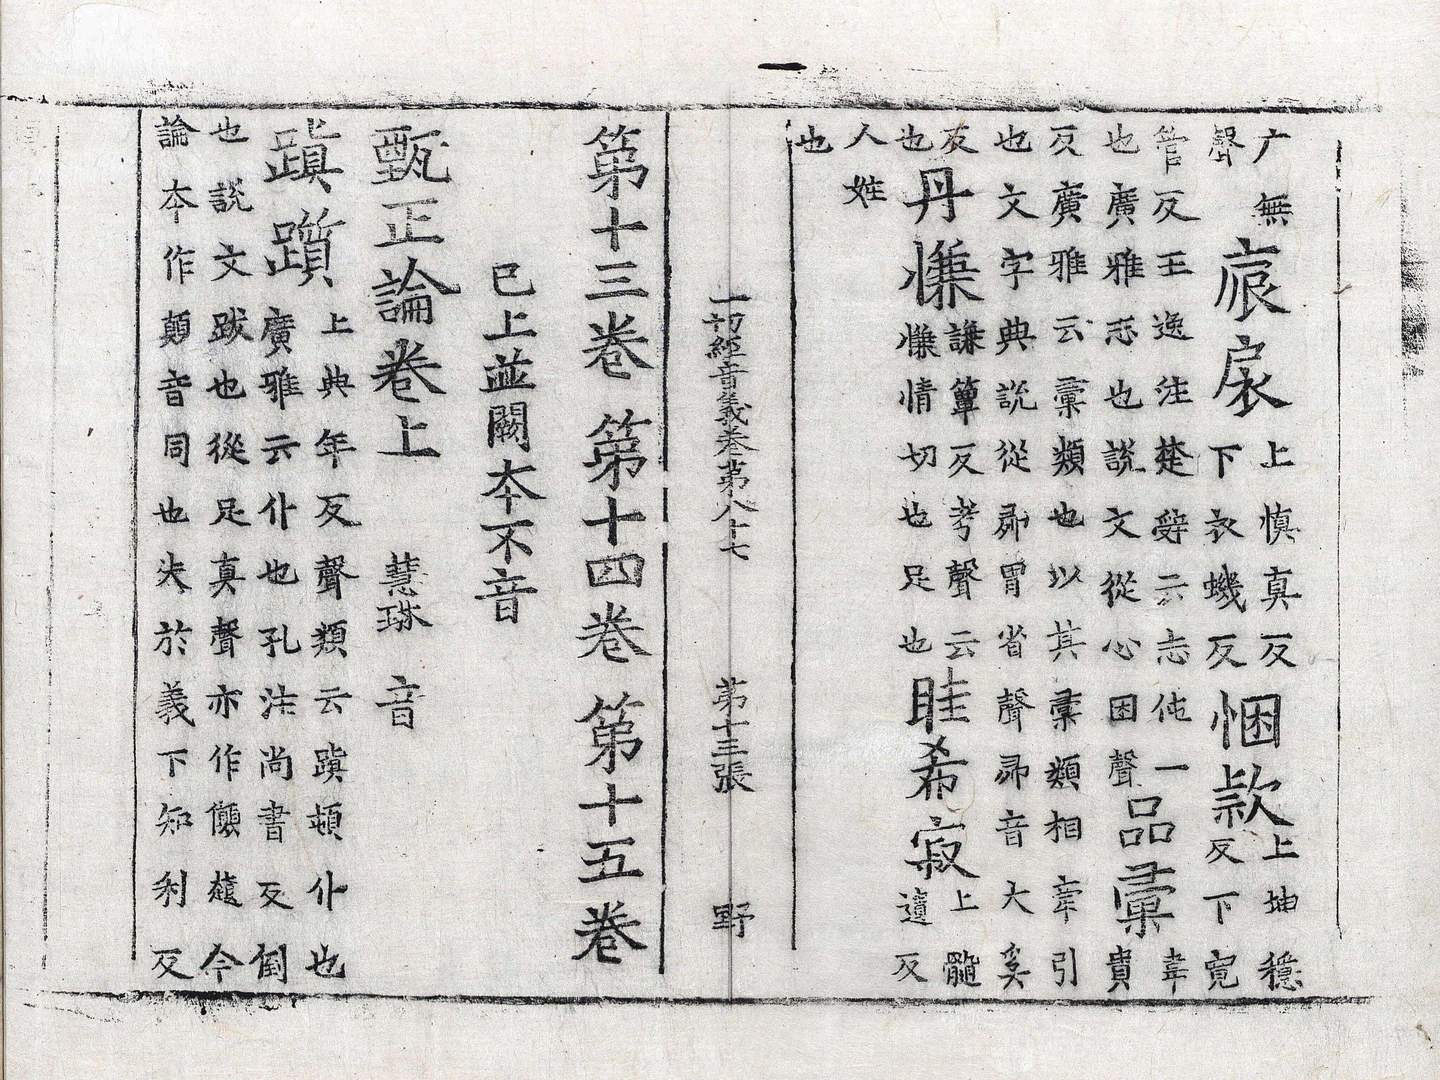 广無
聲
宸扆
上慎真反
下衣蟣反
悃款
上坤穩
反下寬
管反王逸注楚辭云志伅一
也廣雅志也說文從心困聲
品彙
韋
貴
反廣雅云彙類也以其彙類相牽引
也文字典說從㣇胃省聲㣇音大奚
反
也
丹慊
謙簟反考聲云
慊情切也足也
眭希寂
上髓
遺反
人姓
也
一切經音義卷第八十七 第十三張 野
第十三卷 第十四卷 第十五卷
已上並闕本不音
甄正論卷上 慧琳 音
蹎躓
上典年反聲類云蹎頓仆也
廣雅云仆也孔注尚書反倒
也說文跋也從足真聲亦作傎今
論本作顛音同也失於義下知利反